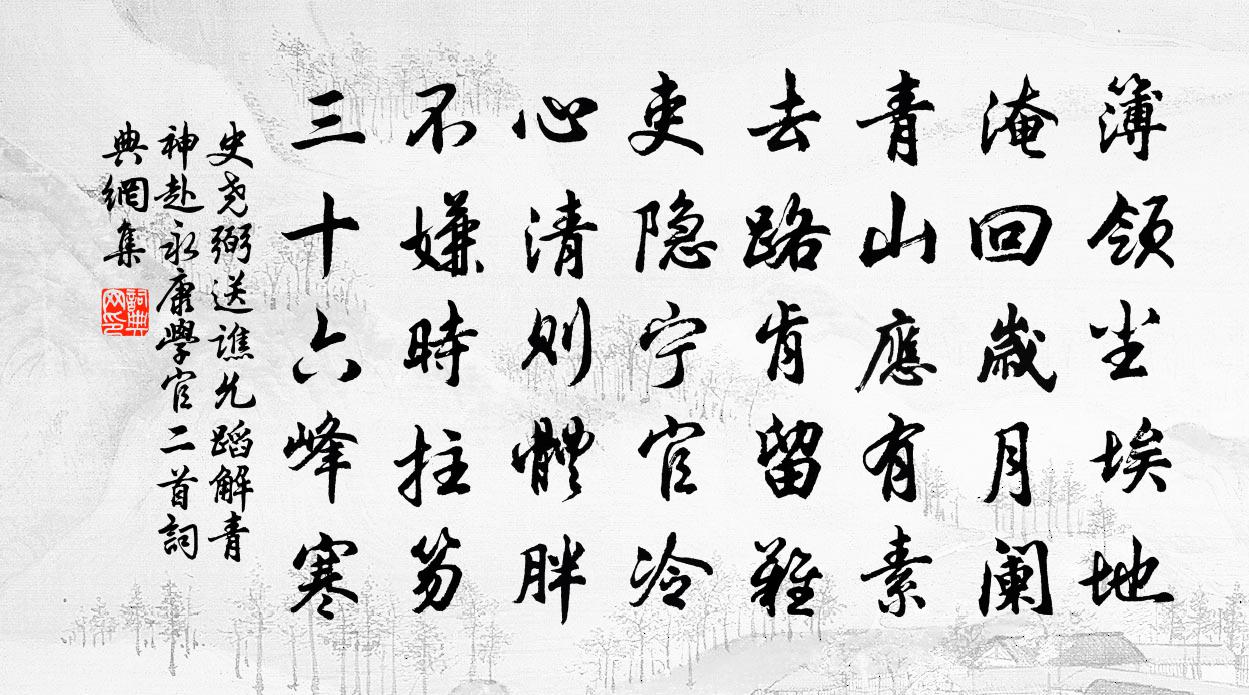 簿领尘埃地
淹回歲月阑
青山應有素
去路肯留難
吏隐宁官冷
心清则體胖
不嫌時拄笏
三十六峰寒
史尧弼送譙允蹈解青
神赴永康學官二首詞
典網集
詞典
网印